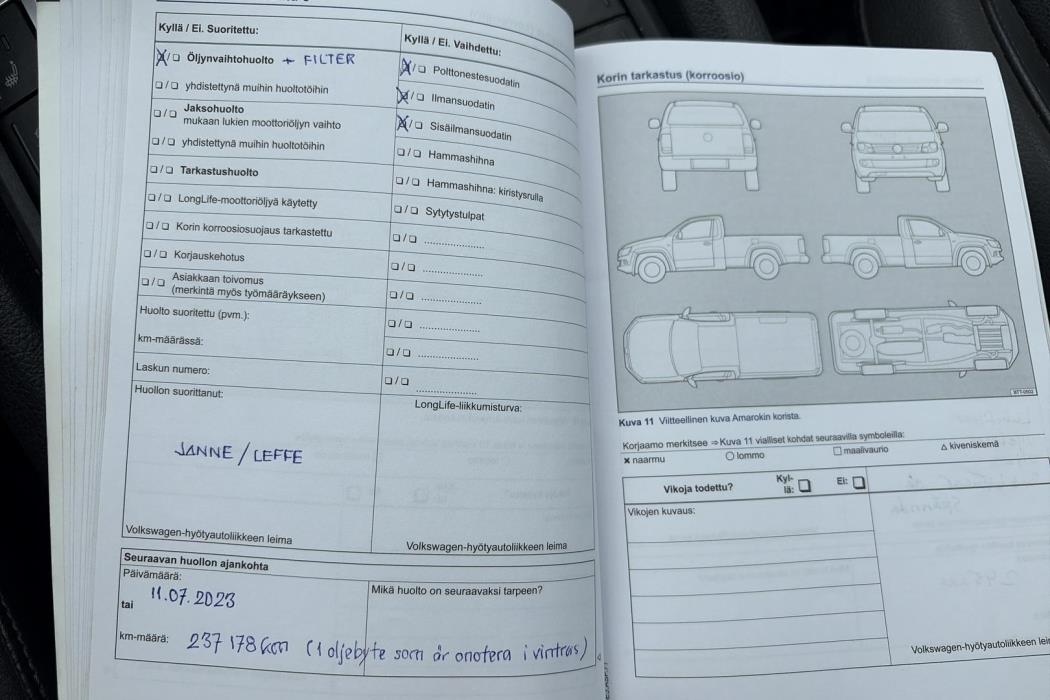 Kyllä / Ei. Suoritettu:
Öljynvaihtohuolto + FILTER
yhdistettynä muihin huoltotöihin
Jaksohuolto
mukaan lukien moottoriöljyn vaihto
yhdistettynä muihin huoltotöihin
Tarkastushuolto
LongLife-moottoriöljyä käytetty
Korin korroosiosuojaus tarkastettu
Korjauskehotus
Asiakkaan toivomus
(merkintä myös työmääräykseen)
Huolto suoritettu (pvm.):
km-määrässä:
Laskun numero:
Huollon suorittanut:
JANNE / LEFFE
Volkswagen-hyötyautoliikkeen leima
Kyllä / Ei. Vaihdettu:
Polttonestesuodatin
Ilmansuodatin
Sisäilmansuodatin
Hammashihna
Hammashihna: kiristysrulla
Sytytystulpat
LongLife-liikkumisturva:
Volkswagen-hyötyautoliikkeen leima
Seuraavan huollon ajankohta
Päivämäärä:
11.07.2023
tai
km-määrä: 237 178 km (1 oljebyte som är onotera i vintras)
Mikä huolto on seuraavaksi tarpeen?
Korin tarkastus (korroosio)
Kuva 11 Viitteellinen kuva Amarokin korista.
Korjaamo merkitsee ⇒ Kuva 11 vialliset kohdat seuraavilla symboleilla:
✗ naarmu ○ lommo □ maalivaurio △ kiveniskemä
Vikoja todettu? Kyl-
lä: Ei:
Vikojen kuvaus:
Volkswagen-hyötyautoliikkeen